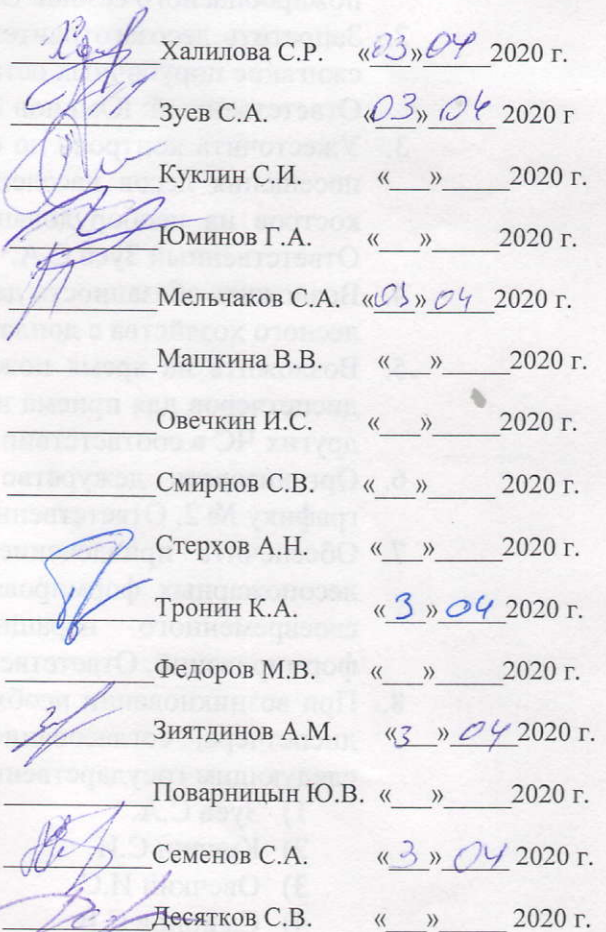 ____________Халилова С.Р. «03»_04_2020 г.
____________Зуев С.А. «03»_04_2020 г
____________Куклин С.И. «___»_____2020 г.
____________Юминов Г.А. «___»_____2020 г.
____________Мельчаков С.А. «03»_04_2020 г.
____________Машкина В.В. «___»_____2020 г.
____________Овечкин И.С. «___»_____2020 г.
____________Смирнов С.В. «___»_____2020 г.
____________Стерхов А.Н. «___»_____2020 г.
____________Тронин К.А. «_3_»_04_2020 г.
____________Федоров М.В. «___»_____2020 г.
____________Зиятдинов А.М. «3__»_04_2020 г.
____________Поварницын Ю.В. «___»_____2020 г.
____________Семенов С.А. «_3_»_04_2020 г.
____________Десятков С.В. «___»_____2020 г.